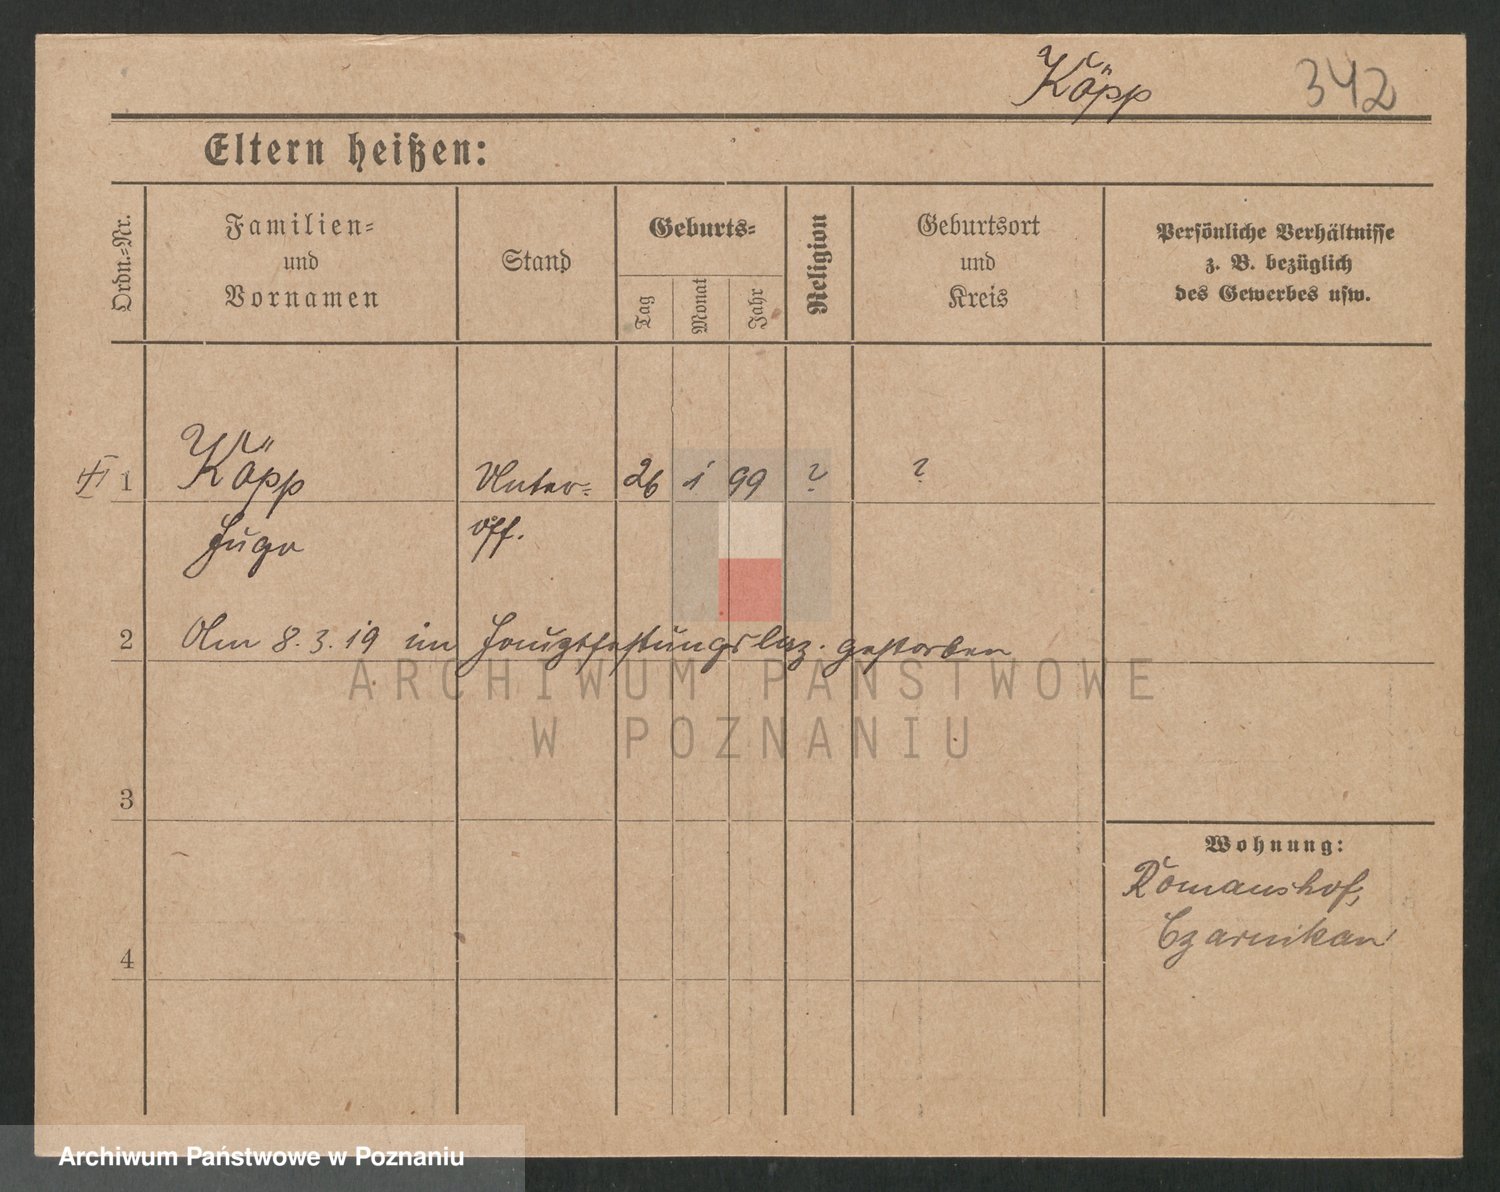 Köpp 342
Eltern heißen:
Ordn.-Nr.
Familien-
und
Vornamen
Stand
Geburts-
Tag
Monat
Jahr
Religion
Geburtsort
und
Kreis
Persönliche Verhältnisse
z. B. bezüglich
des Gewerbes usw.
1 Köpp Unter- 26 1 99 ? ?
Hugo off.
2 Am 8.3.19 im Hauptfestungslaz. gestorben
ARCHIWUM PAŃSTWOWE
W POZNANIU
3
Wohnung:
Romanshof,
Czarnikau
4
Archiwum Państwowe w Poznaniu